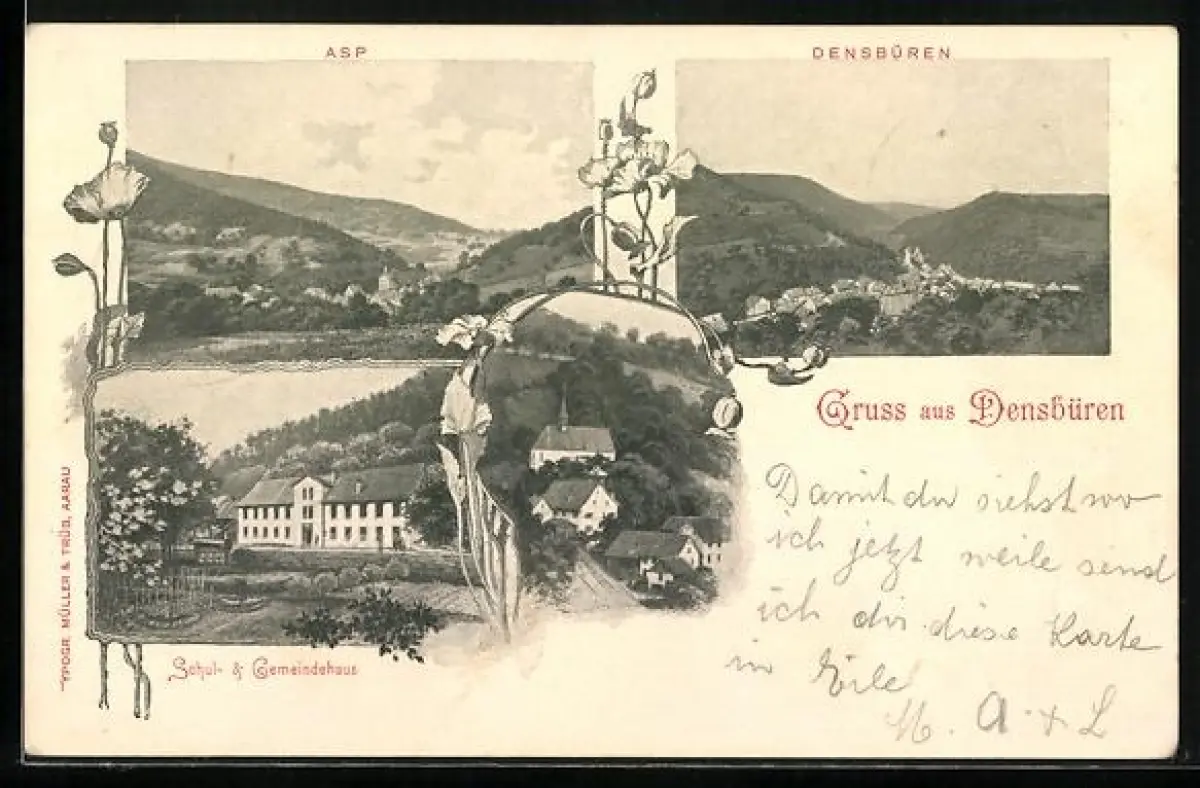 ASP
DENSBÜREN
Gruss aus Densbüren
Damit du siehst wo
ich jetzt weile send
ich dir diese Karte
in Eile
M. A. & L
Schul- & Gemeindehaus
TYPOGR. MÜLLER & TRÜB, AARAU